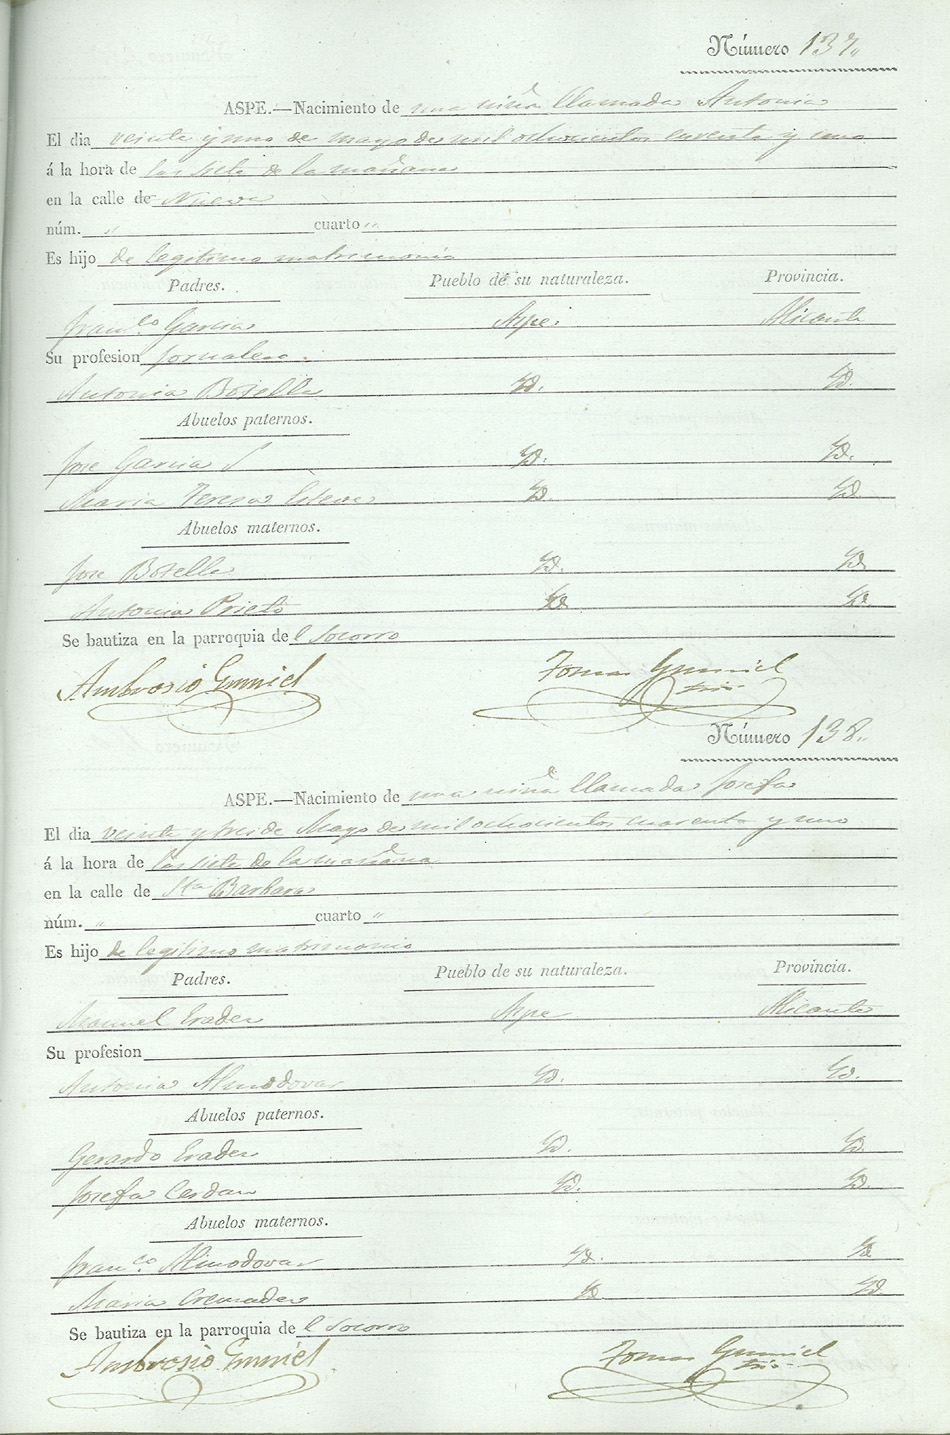 Número 137.
ASPE.—Nacimiento de una niña llamada Antonia
El dia veinte y uno de mayo de mil ochocientos cuarenta y uno
á la hora de las siete de la mañana
en la calle de Nueva
núm. " cuarto "
Es hijo de legitimo matrimonio
Padres. Pueblo de su naturaleza. Provincia.
Franco Garcia Aspe. Alicante
Su profesion jornalero.
Antonia Botella Yd. Yd.
Abuelos paternos.
Jose Garcia Yd. Yd.
Maria Teresa Esteve Yd. Yd.
Abuelos maternos.
Jose Botella Yd. Yd.
Antonia Prieto Yd. Yd.
Se bautiza en la parroquia del Socorro
Ambrosio Tomas
Número 138.
ASPE.—Nacimiento de una niña llamada Josefa
El dia veinte y tres de Mayo de mil ochocientos cuarenta y uno
á la hora de las siete de la mañana
en la calle de Sta Barbara
núm. " cuarto "
Es hijo de legitimo matrimonio
Padres. Pueblo de su naturaleza. Provincia.
Manuel Erades Aspe Alicante
Su profesion
Antonia Almodovar Yd. Yd.
Abuelos paternos.
Gerardo Erades Yd. Yd.
Josefa Cerdan Yd. Yd.
Abuelos maternos.
Franco Almodovar Yd. Yd.
Maria Cremades Yd. Yd.
Se bautiza en la parroquia del Socorro
Ambrosio Tomas